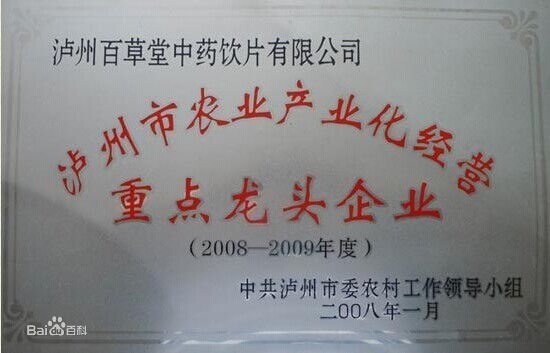 泸州百草堂中药饮片有限公司
泸州市农业产业化经营
重点龙头企业
(2008—2009年度)
中共泸州市委农村工作领导小组
二OO八年一月
Bai百科